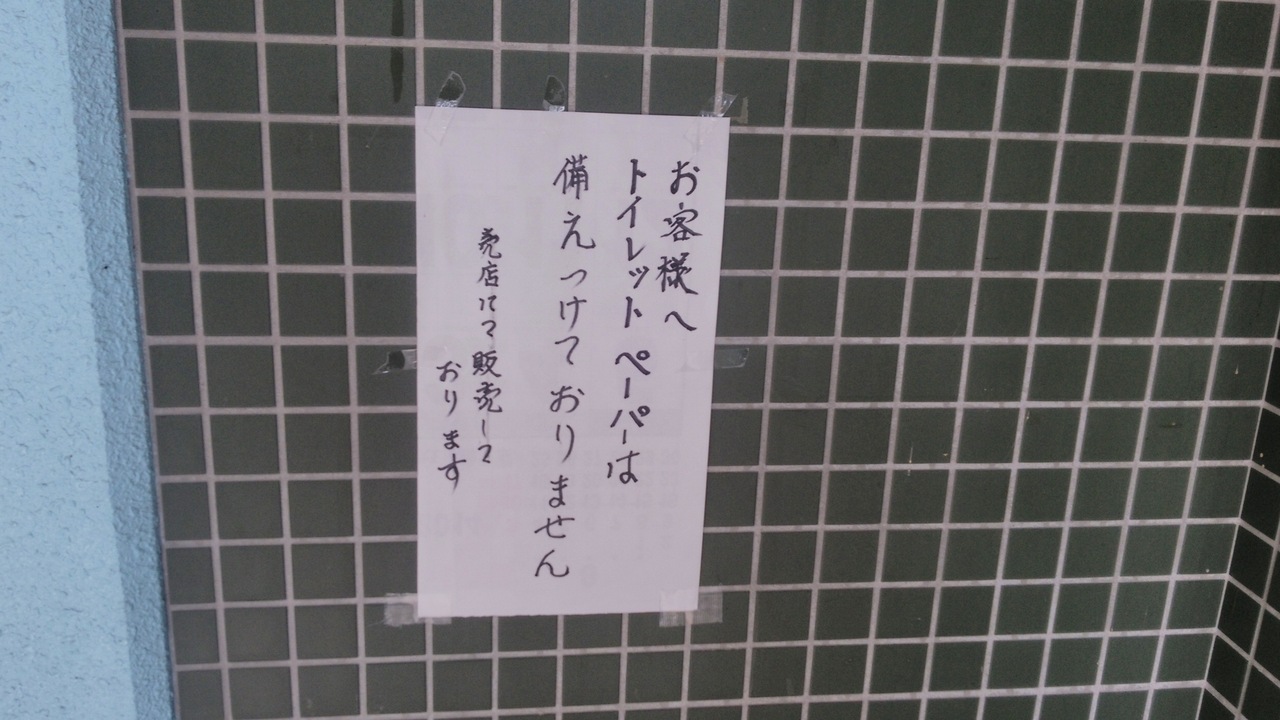 お客様へ
トイレットペーパーは
備えつけておりません
売店にて販売して
おります